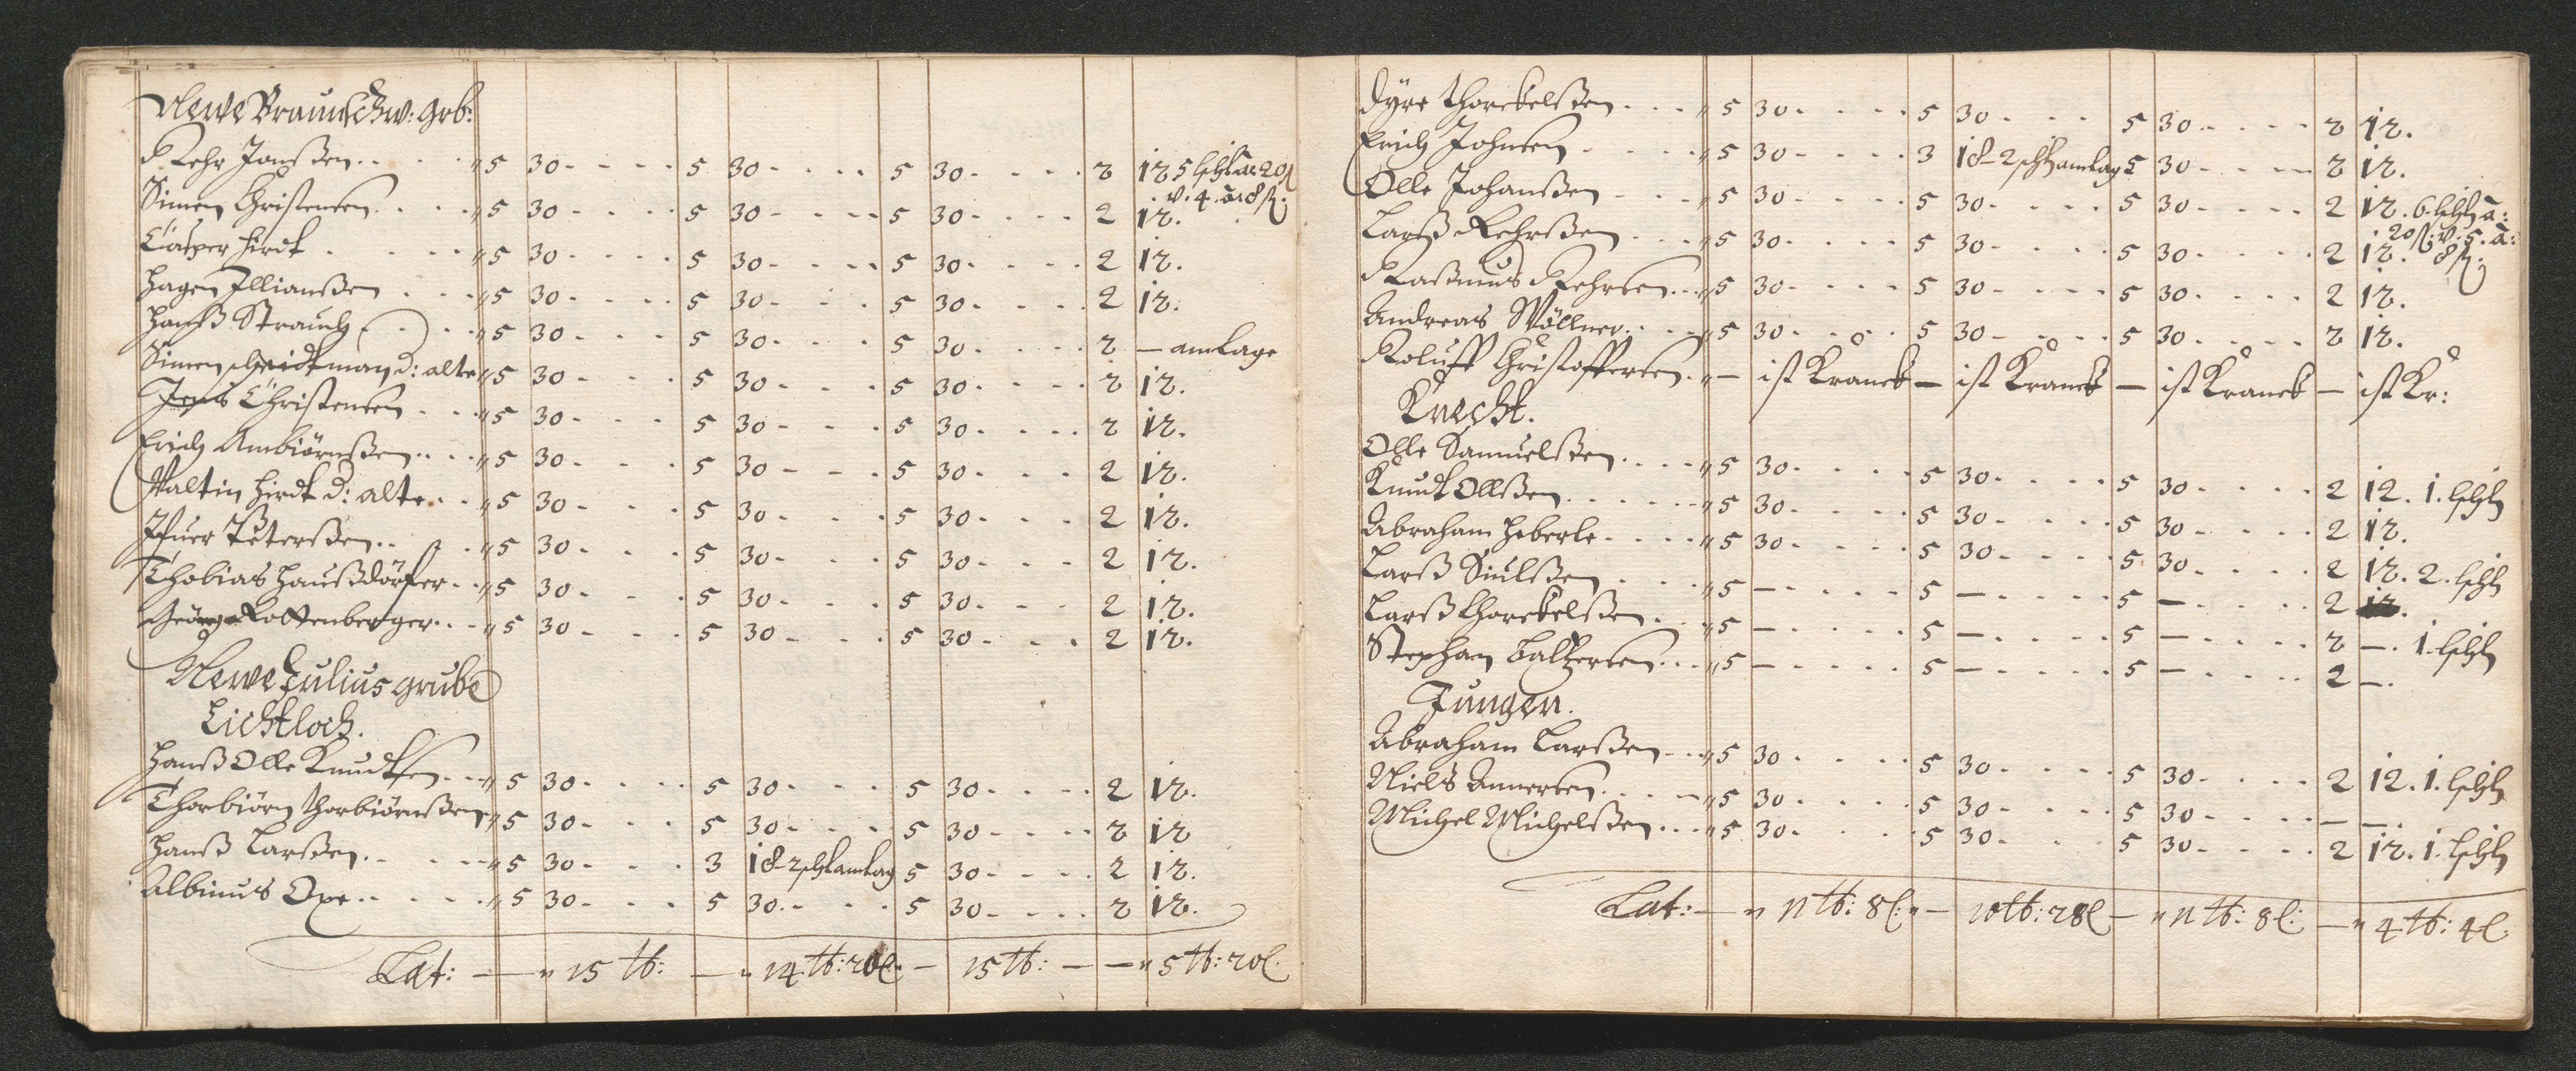 Newe Braunschw: grb:
Pehr Jonßen . . . " 5 30 - - - - 5 30 - . . . 5 30 - - - . 2 12 5 schl a: 20 ß
v. 4. a: 8 ß.
Simen Christensen . . . " 5 30 - . . . 5 30 - - - . 5 30 - - . . 2 12.
Casper Hirdt . . . " 5 30 - . . . 5 30 - - . . 5 30 - . . . 2 12.
Hagen Illianßen . . . " 5 30 - . . . 5 30 - . . . 5 30 - . . . 2 12.
Hanß Strauch . . . " 5 30 - . . 5 30 - . . 5 30 . . . . 2 — amlage
Simen Scheidtman d: alte " 5 30 - . . 5 30 - . . 5 30 - . . . 2 12.
Jens Christensen . . . " 5 30 - . . 5 30 - . . 5 30 - . . . 2 12.
Erich Ambiörnßen . . . " 5 30 - . . 5 30 - - . 5 30 - . . 2 12.
Valtin Hirdt d: alte . . " 5 30 - . . 5 30 - . . 5 30 - . . 2 12.
Ifuer Peterßen . . . " 5 30 - . . 5 30 - . . 5 30 - . . 2 12.
Thobias Haußdörfer . . " 5 30 - . . 5 30 - . . 5 30 - . . 2 12.
Georg Rottenberger . . " 5 30 - . . 5 30 - . . 5 30 - . . 2 12.
Newe Julius grube
Lichtloch.
Hanß Olle Knudtsen . . " 5 30 - . . . 5 30 - . . . 5 30 - . . . 2 12.
Thorbiörn Thorbiörnßen " 5 30 - . . 5 30 - . . . 5 30 - . . . 2 12
Hanß Larßen . . . " 5 30 - . . 3 18 - 2 schl amlag 5 30 - . . . 2 12.
Albinus Oxe . . . " 5 30 - . . 5 30 - . . . 5 30 - . . . 2 12.
Lat: — " 15 tb: — " 14 tb: 20 l — 15 tb: — — " 5 tb: 20 l.
Dyre Thorckelßen . . . " 5 30 - . . . 5 30 - . . . 5 30 - . . . 2 12.
Erich Johnsen . . . " 5 30 - . . . 3 18 - 2 schl amlag 5 30 - . . . 2 12.
Olle Johanßen . . . " 5 30 - . . . 5 30 - . . . 5 30 - . . . 2 12. 6. schl a:
20 ß. v. 5. a:
8 ß.
Larß Pehrßen . . . " 5 30 - . . . 5 30 - . . . 5 30 - . . . 2 12.
Raßmus Pehrsen . . . " 5 30 - . . . 5 30 - . . . 5 30 - . . . 2 12.
Andreas Wöllner . . . " 5 30 - . . . 5 30 - . . . 5 30 - . . . 2 12.
Roluff Christoffersen . " — ist Kranck — ist Kranck — ist Kranck — ist Kr:
Knecht.
Olle Samuelßen . . . " 5 30 - . . . 5 30 - . . . 5 30 - . . . 2 12. 1. schl
Knudt Olßen . . . " 5 30 - . . . 5 30 - . . . 5 30 - . . . 2 12.
Abraham Heberle . . . " 5 30 - . . . 5 30 - . . . 5 30 - . . . 2 12. 2. schl
Larß Siulßen . . . " 5 — . . . 5 — . . . 5 — . . . 2
Larß Thorckelßen . . . " 5 — . . . 5 — . . . 5 — . . . 2 —. 1. schl
Stephan Baltzersen . . . " 5 — . . . 5 — . . . 5 — . . . 2 —.
Jungen.
Abraham Larßen . . . " 5 30 . . . . 5 30 - . . . 5 30 - . . . 2 12. 1. schl
Niels Annersen . . . " 5 30 - . . . 5 30 - . . . 5 30 - . . . — —.
Michel Michelßen . . . " 5 30 - . . . 5 30 - . . . 5 30 - . . . 2 12. 1. schl
Lat: — " 11 tb: 8 l: " — 10 tb: 28 l — " 11 tb: 8 l: — " 4 tb: 4 l.